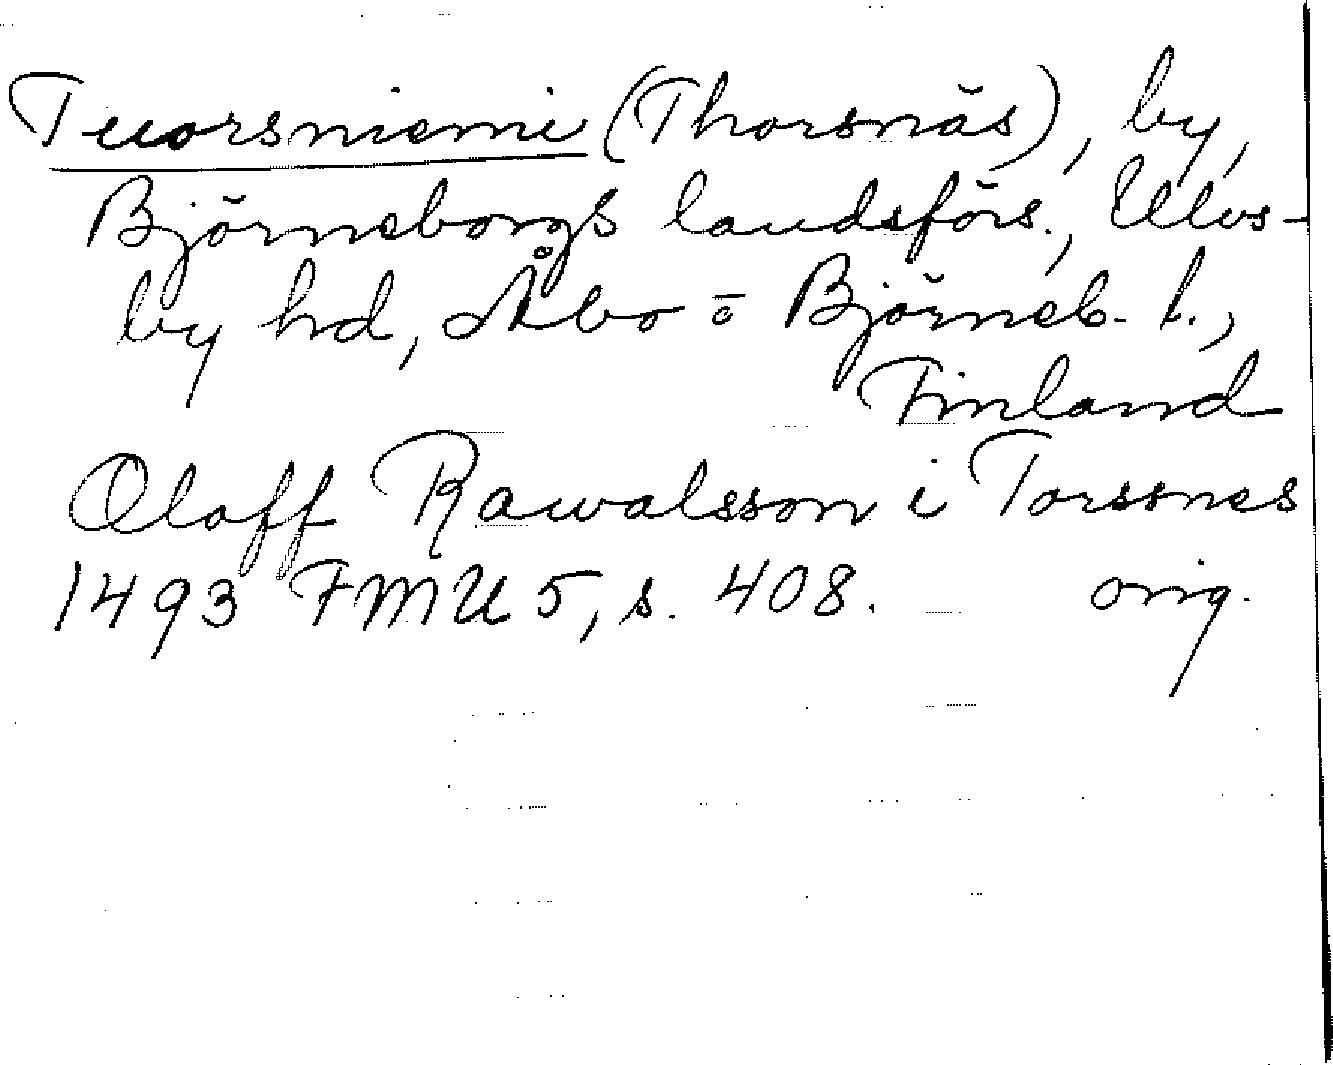 Tuorsniemi (Thorsnäs), by,
Björneborgs landsförs., Ulvs-
by hd, Åbo o Björneb. l.,
Finland
Oloff Rawalsson i Torssnes
1493 FMU 5, s. 408. orig.